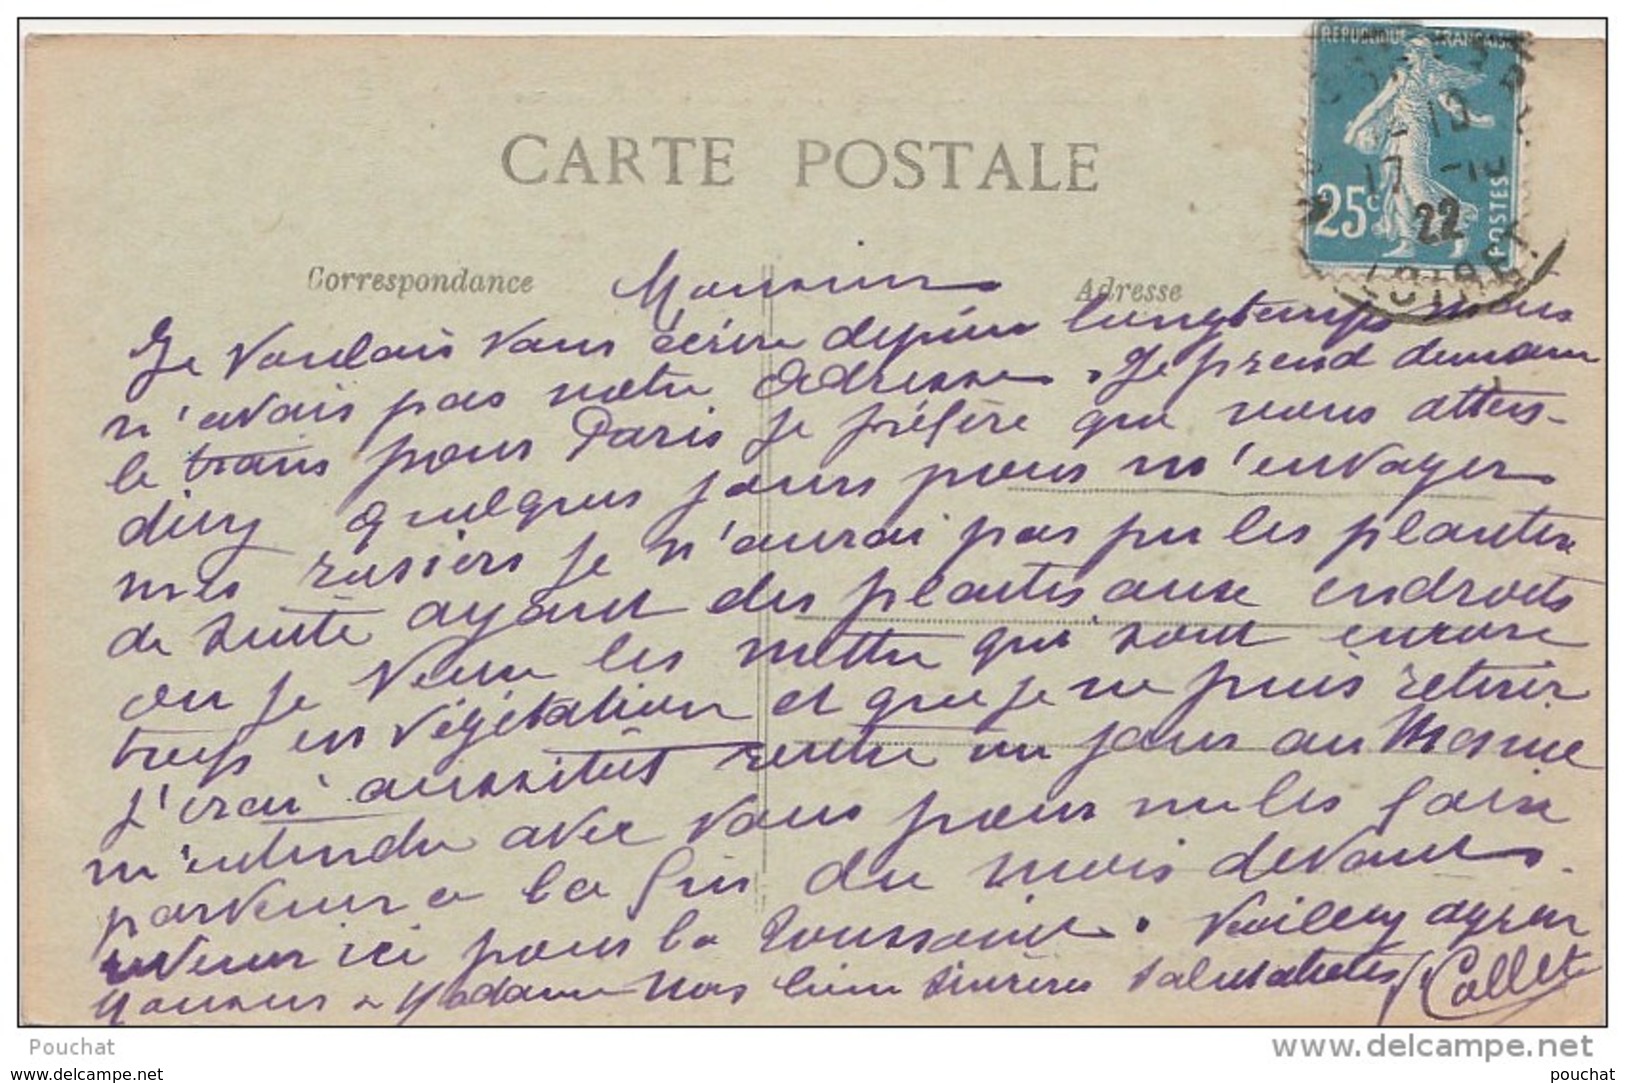 REPUBLIQUE FRANÇAISE
25c POSTES
17 -10
22
LOIRET
CARTE POSTALE
Correspondance
Adresse
Monsieur
Je voulais vous écrire depuis longtemps mais
n'avais pas notre adresse. Je prend demain
le train pour Paris je préfère que vous atten-
diez quelques jours pour m'envoyer
mes rosiers je n'aurai pas pu les planter
de suite ayant des plantes aux endroits
ou je veux les mettre qui sont encore
trop en végétation et que je ne puis retirer
j'irai aussitôt rentré un jour au
m'entendre avec vous pour me les faire
parvenir a la fin du mois devant
revenir ici pour la Toussaint. Veuillez agréer
Monsieur & Madame nos bien sincères salutations
Collet
Pouchat
www.delcampe.net
www.delcampe.com
pouchat